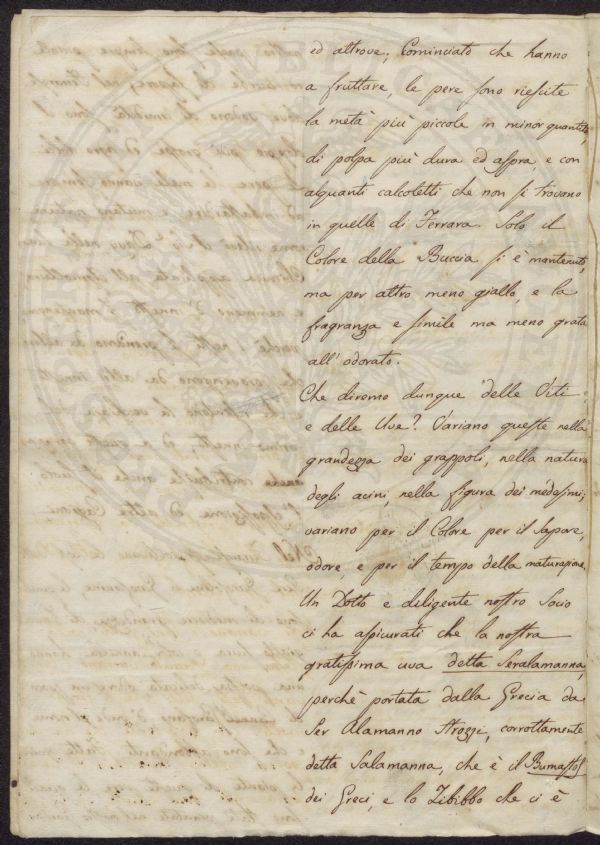 ed altrove; Cominciato che hanno
a fruttare, le pere sono riescite
la metà più piccole in minor quantità,
di polpa più dura ed aspra, e con
alquanti calcoletti che non si trovano
in quelle di Ferrara. Solo il
Colore della Buccia si è mantenuto,
ma per altro meno giallo, e la
fragranza e simile ma meno grata
all' odorato.
Che diremo dunque delle Viti
e delle Uve? Variano queste nella
grandezza dei grappoli, nella natura
degli acini, nella figura dei medesimi;
variano per il Colore per il sapore,
odore, e per il tempo della maturazione.
Un Dotto e diligente nostro Socio
ci ha assicurati che la nostra
gratissima uva detta Seralamanna,
perchè portata dalla Grecia da
Ser Alamanno Strozzi, corrottamente
detta Salamanna, che è il Bumastos
dei Greci, e lo Zibibbo che ci è